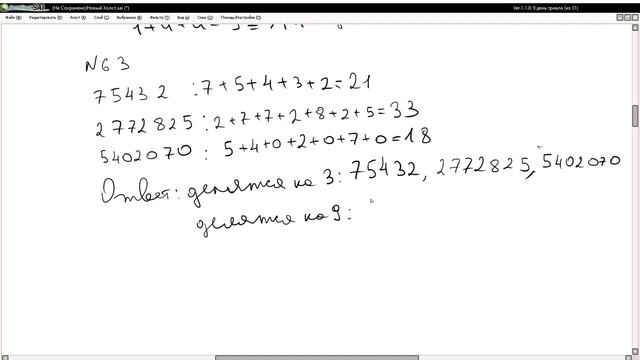 (Не Сохранено)Новый Холст.sai (*)
Ver.1.1.0: 9 день триала (из 31)
Файл(F) Редактировать(E) Холст(C) Слой(L) Выбранное(S) Фильтр(T) Вид(V) Окно(W) Помощь/Настройки(O)
N63
75432 : 7+5+4+3+2=21
2772825 : 2+7+7+2+8+2+5=33
5402070 : 5+4+0+2+0+7+0=18
Ответ: делятся на 3: 75432, 2772825, 5402070
делятся на 9: